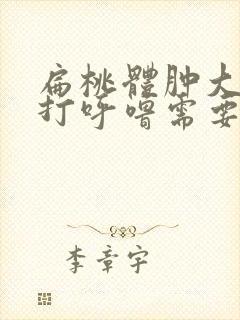 扁桃體肿大
打呼噜需要
李章宇